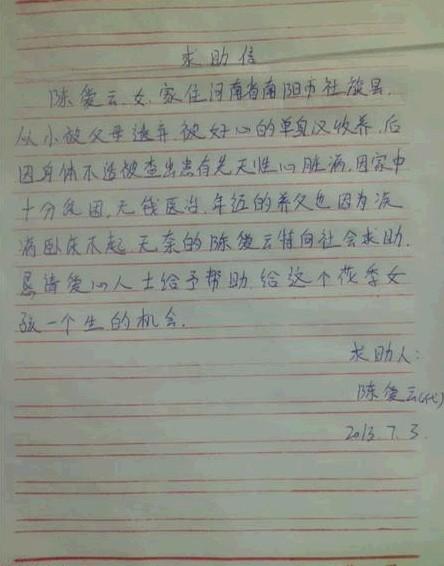 求助信
陈爱云,女,家住河南省南阳市社旗县,
从小被父母遗弃,被好心的单身汉收养,后
因身体不适被查出患有先天性心脏病,因家中
十分贫困,无钱医治,年迈的养父也因为
病卧床不起,无奈的陈爱云特向社会求助,
恳请爱心人士给予帮助,给这个花季女
孩一个生的机会.
求助人:
陈爱云(代)
2013.7.3.